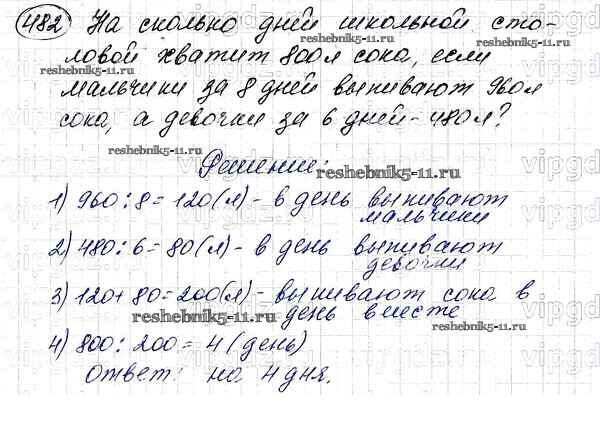 482 На сколько дней школьной сто-
ловой хватит 800л сока, если
reshebnik5-11.ru reshebnik5-11.ru
мальчики за 8 дней выпивают 960л
сока, а девочки за 6 дней - 480л?
reshebnik5-11.ru
Решение:
reshebnik5-11.ru
1) 960:8=120(л)- в день выпивают
мальчики
2) 480:6=80(л)- в день выпивают
девочки
3) 120+80=200(л)- выпивают сока в
день вместе
reshebnik5-11.ru
reshebnik5-11.ru
4) 800:200=4(день)
Ответ: на 4 дня.